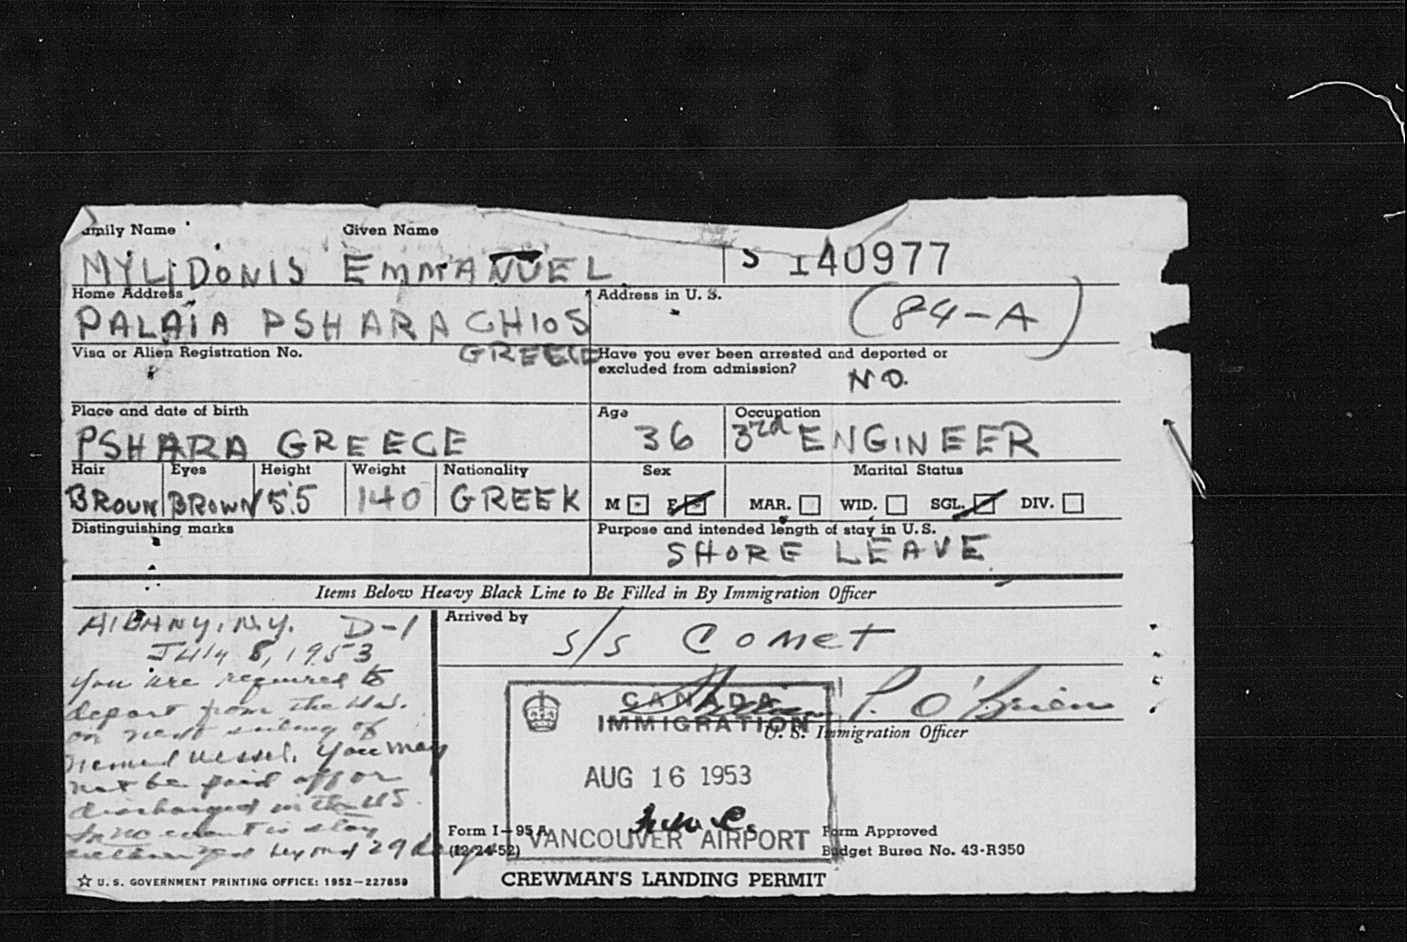 Family Name Given Name
MYLIDONIS EMMANUEL S 140977
Home Address Address in U. S.
PALAIA PSHARA CHIOS (84-A)
GREECE
Visa or Alien Registration No. Have you ever been arrested and deported or
excluded from admission?
NO.
Place and date of birth Age Occupation
PSHARA GREECE 36 3rd ENGINEER
Hair Eyes Height Weight Nationality Sex Marital Status
BROUN BROWN 5.5 140 GREEK M F MAR. WID. SGL. DIV.
Distinguishing marks Purpose and intended length of stay in U.S.
SHORE LEAVE
Items Below Heavy Black Line to Be Filled in By Immigration Officer
Arrived by
s/s Comet
P. O'Brien
U. S. Immigration Officer
Albany, N.Y. D-1
July 8, 1953
You are required to
depart from the U.S.
on next sailing of
named vessel. You may
not be paid off or
discharged in the US.
In no event is stay
authorized beyond 29 days
CANADA
IMMIGRATION
AUG 16 1953
VANCOUVER AIRPORT
Form I-95A
(12-24-52)
Form Approved
Budget Bureau No. 43-R350
☆ U. S. GOVERNMENT PRINTING OFFICE: 1952—227850
CREWMAN'S LANDING PERMIT